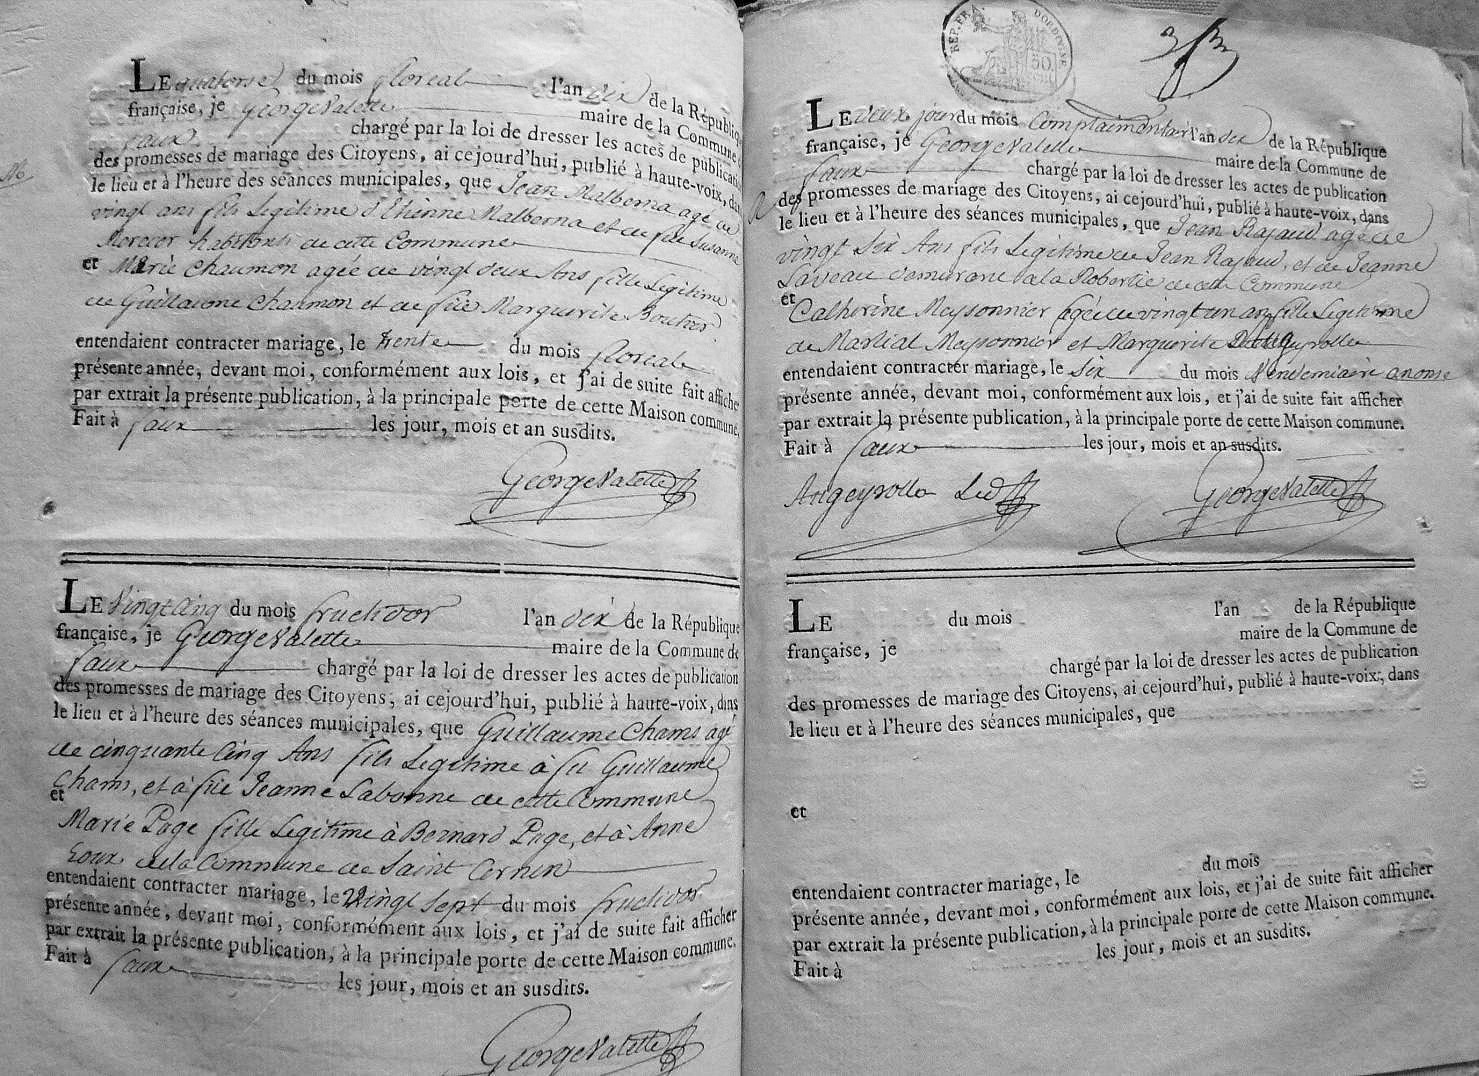 LE quatorse du mois floreal l'an dix de la République
française, je George Valette maire de la Commune
faux chargé par la loi de dresser les actes de publication
des promesses de mariage des Citoyens, ai cejourd'hui, publié à haute-voix, dans
le lieu et à l'heure des séances municipales, que Jean Malberna agé de
vingt ans fils Legitime d'Etienne Malberna et de fue Susanne
habitants de cette Commune
et Marie Chaumon agée de vingt deux Ans fille Legitime
de Guillaume Chaumon et de fue Marguerite Boutier
entendaient contracter mariage, le trente du mois floreal
présente année, devant moi, conformément aux lois, et j'ai de suite fait afficher
par extrait la présente publication, à la principale porte de cette Maison commune.
Fait à faux les jour, mois et an susdits.
George Valette
LE Vingt Cinq du mois fructidor l'an dix de la République
française, je George Valette maire de la Commune de
faux chargé par la loi de dresser les actes de publication
des promesses de mariage des Citoyens, ai cejourd'hui, publié à haute-voix, dans
le lieu et à l'heure des séances municipales, que Guillaume Chams agé
de cinquante Cinq Ans fils Legitime à fu Guillaume
Chams, et à fue Jeanne Labonne de cette Commune
et
Marie Page fille Legitime à Bernard Page, et à Anne
Roux de la Commune de Saint Cernin
entendaient contracter mariage, le Vingt Sept du mois fructidor
présente année, devant moi, conformément aux lois, et j'ai de suite fait afficher
par extrait la présente publication, à la principale porte de cette Maison commune.
Fait à faux les jour, mois et an susdits.
George Valette
REP. FRA. DORDOGNE
50
LE deux jour du mois Complaimentair l'an dix de la République
française, je George Valette maire de la Commune de
faux chargé par la loi de dresser les actes de publication
des promesses de mariage des Citoyens, ai cejourd'hui, publié à haute-voix, dans
le lieu et à l'heure des séances municipales, que Jean Rajaud agé de
vingt Six Ans fils Legitime de Jean Rajaud, et de Jeanne
Laveau demurant à la Robertie de cette Commune
et
Catherine Meysonnier agée de vingt un ans fille Legitime
de Martial Meysonnier et Marguerite Dangeyrolle
entendaient contracter mariage, le Six du mois Vendemiaire an onse
présente année, devant moi, conformément aux lois, et j'ai de suite fait afficher
par extrait la présente publication, à la principale porte de cette Maison commune.
Fait à faux les jour, mois et an susdits.
Angeyrolle George Valette
LE du mois l'an de la République
française, je maire de la Commune de
chargé par la loi de dresser les actes de publication
des promesses de mariage des Citoyens, ai cejourd'hui, publié à haute-voix, dans
le lieu et à l'heure des séances municipales, que
et
entendaient contracter mariage, le du mois
présente année, devant moi, conformément aux lois, et j'ai de suite fait afficher
par extrait la présente publication, à la principale porte de cette Maison commune.
Fait à les jour, mois et an susdits.